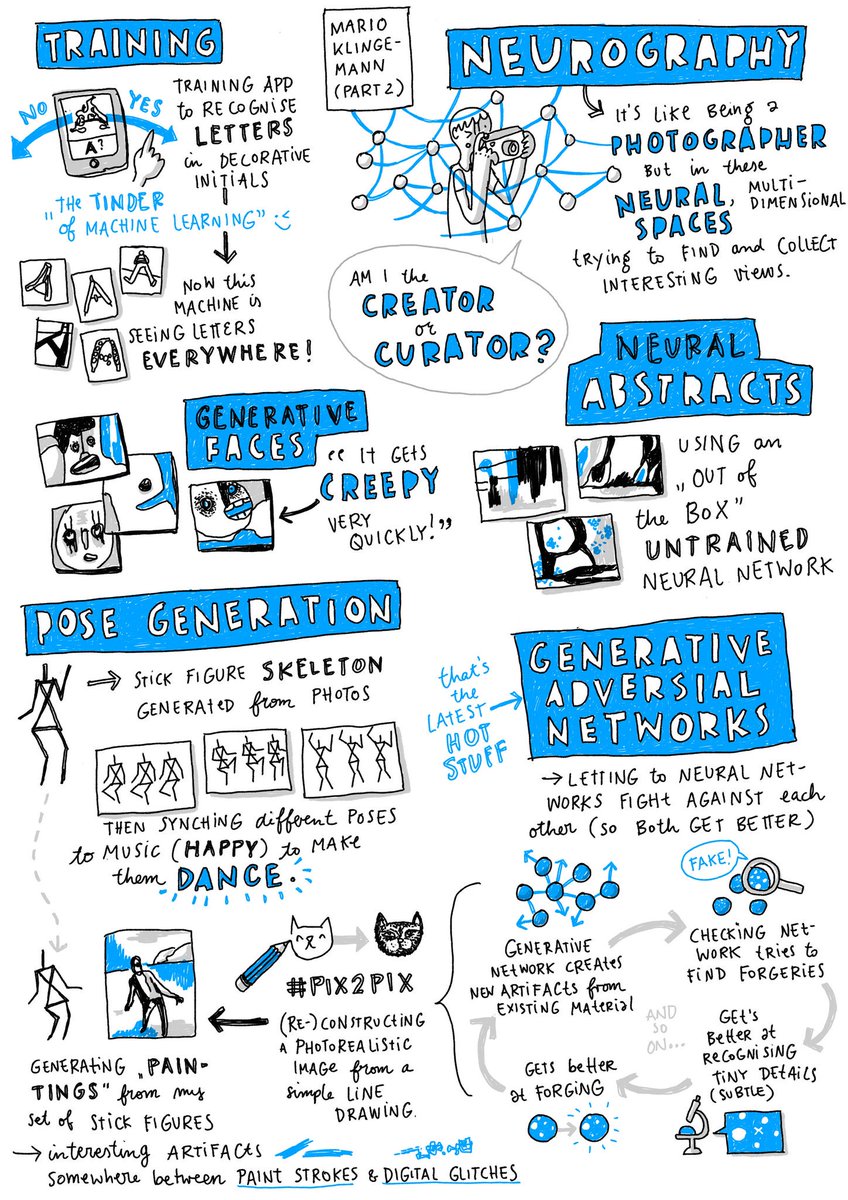 TRAINING
NO
YES
A?
TRAINING APP
to RECOGNISE
LETTERS
in DECORATIVE
INITIALS
the TINDER
"of MACHINE LEARNING"
NOW this
MACHINE is
SEEING LETTERS
EVERYWHERE!
MARIO
KLINGE-
MANN
(PART 2)
NEUROGRAPHY
It's like Being a
PHOTOGRAPHER
But in these
NEURAL, MULTI-
SPACES DIMENSIONAL
trying to FIND and COLLECT
INTERESTING views.
AM I the
CREATOR
or
CURATOR?
NEURAL
ABSTRACTS
USING an
„OUT of
the BOX"
UNTRAINED
NEURAL NETWORK
GENERATIVE
FACES
“IT GETS
CREEPY
VERY
QUICKLY!”
POSE GENERATION
STICK FIGURE SKELETON
GENERATED from PHOTOS
THEN SYNCHING different POSES
to MUSIC (HAPPY) to MAKE
them DANCE.
#PIX2PIX
(RE-)CONSTRUCTING
A PHOTOREALISTIC
IMAGE from a
simple LINE
DRAWING.
GENERATING „PAIN-
TINGS" from my
set of STICK FIGURES
→ interesting ARTIFACTS
somewhere between PAINT STROKES & DIGITAL GLITCHES
that's
the
LATEST
HOT
STUFF
GENERATIVE
ADVERSIAL
NETWORKS
→ LETTING to NEURAL NET-
WORKS FIGHT AGAINST each
other (so Both GET BETTER)
GENERATIVE
NETWORK CREATES
NEW ARTIFACTS from
EXISTING MATERIAL
FAKE!
CHECKING NET-
WORK tries to
FIND FORGERIES
GET's
Better at
RECOGNISING
TINY DETAILS
(SUBTLE)
GETS better
at FORGING
AND
SO
ON...